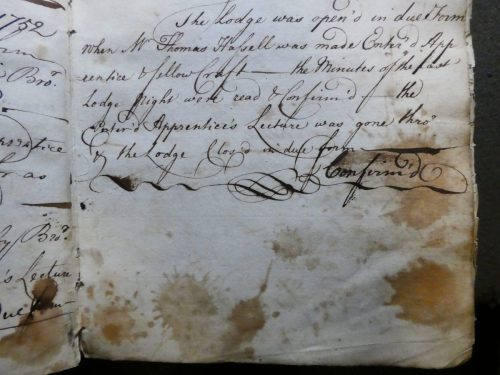 1752
Bro.
as
by Bro.
's Lecture
The Lodge was open'd in due Form
when Mr Thomas Hassell was made Enter'd App
rentice & fellow Craft — the Minutes of the Last
Lodge Night were read & Confirm'd the
Enter'd Apprentice's Lecture was gone thro
& the Lodge Clos'd in due form
Confirm'd